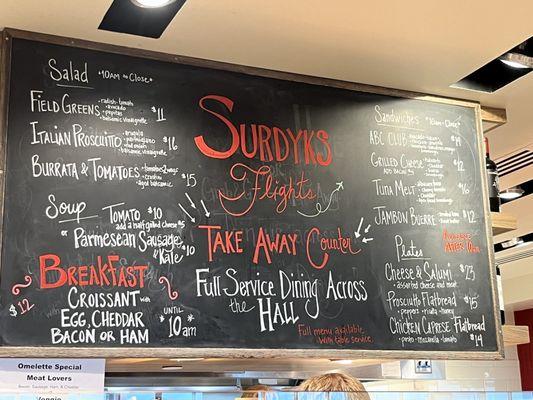 Salad *10AM to Close*
FIELD GREENS • radish • tomato
• avocado
• pepitas
• balsamic vinaigrette $11
ITALIAN PROSCUITTO • arugula
• parmigiano
• red onion
• balsamic vinaigrette $16
BURRATA & TOMATOES • tomatoes
• crostini
• aged balsamic $15
SOUP TOMATO $10
add a half grilled cheese $5
or PARMESEAN SAUSAGE
KALE $10
BREAKFAST
$12 CROISSANT WITH
EGG, CHEDDAR
BACON OR HAM
UNTIL
10am
SURDYKS
Flights
TAKE AWAY COUNTER
FULL SERVICE DINING ACROSS
the HALL
Full menu available
with table service
Sandwiches *10AM - Close
ABC CLUB $14
GRILLED CHEESE $12
ADD BACON $5
TUNA MELT $16
JAMBON BUERRE $12
Plates
CHEESE & SALUMI $23
assorted cheese and meat
PROSCUITTO FLATBREAD $15
CHICKEN CAPRESE FLATBREAD
• pesto • mozzarella • tomato $14
Omelette Special
Meat Lovers
Bacon, Sausage, Ham, & Cheddar
Veggie